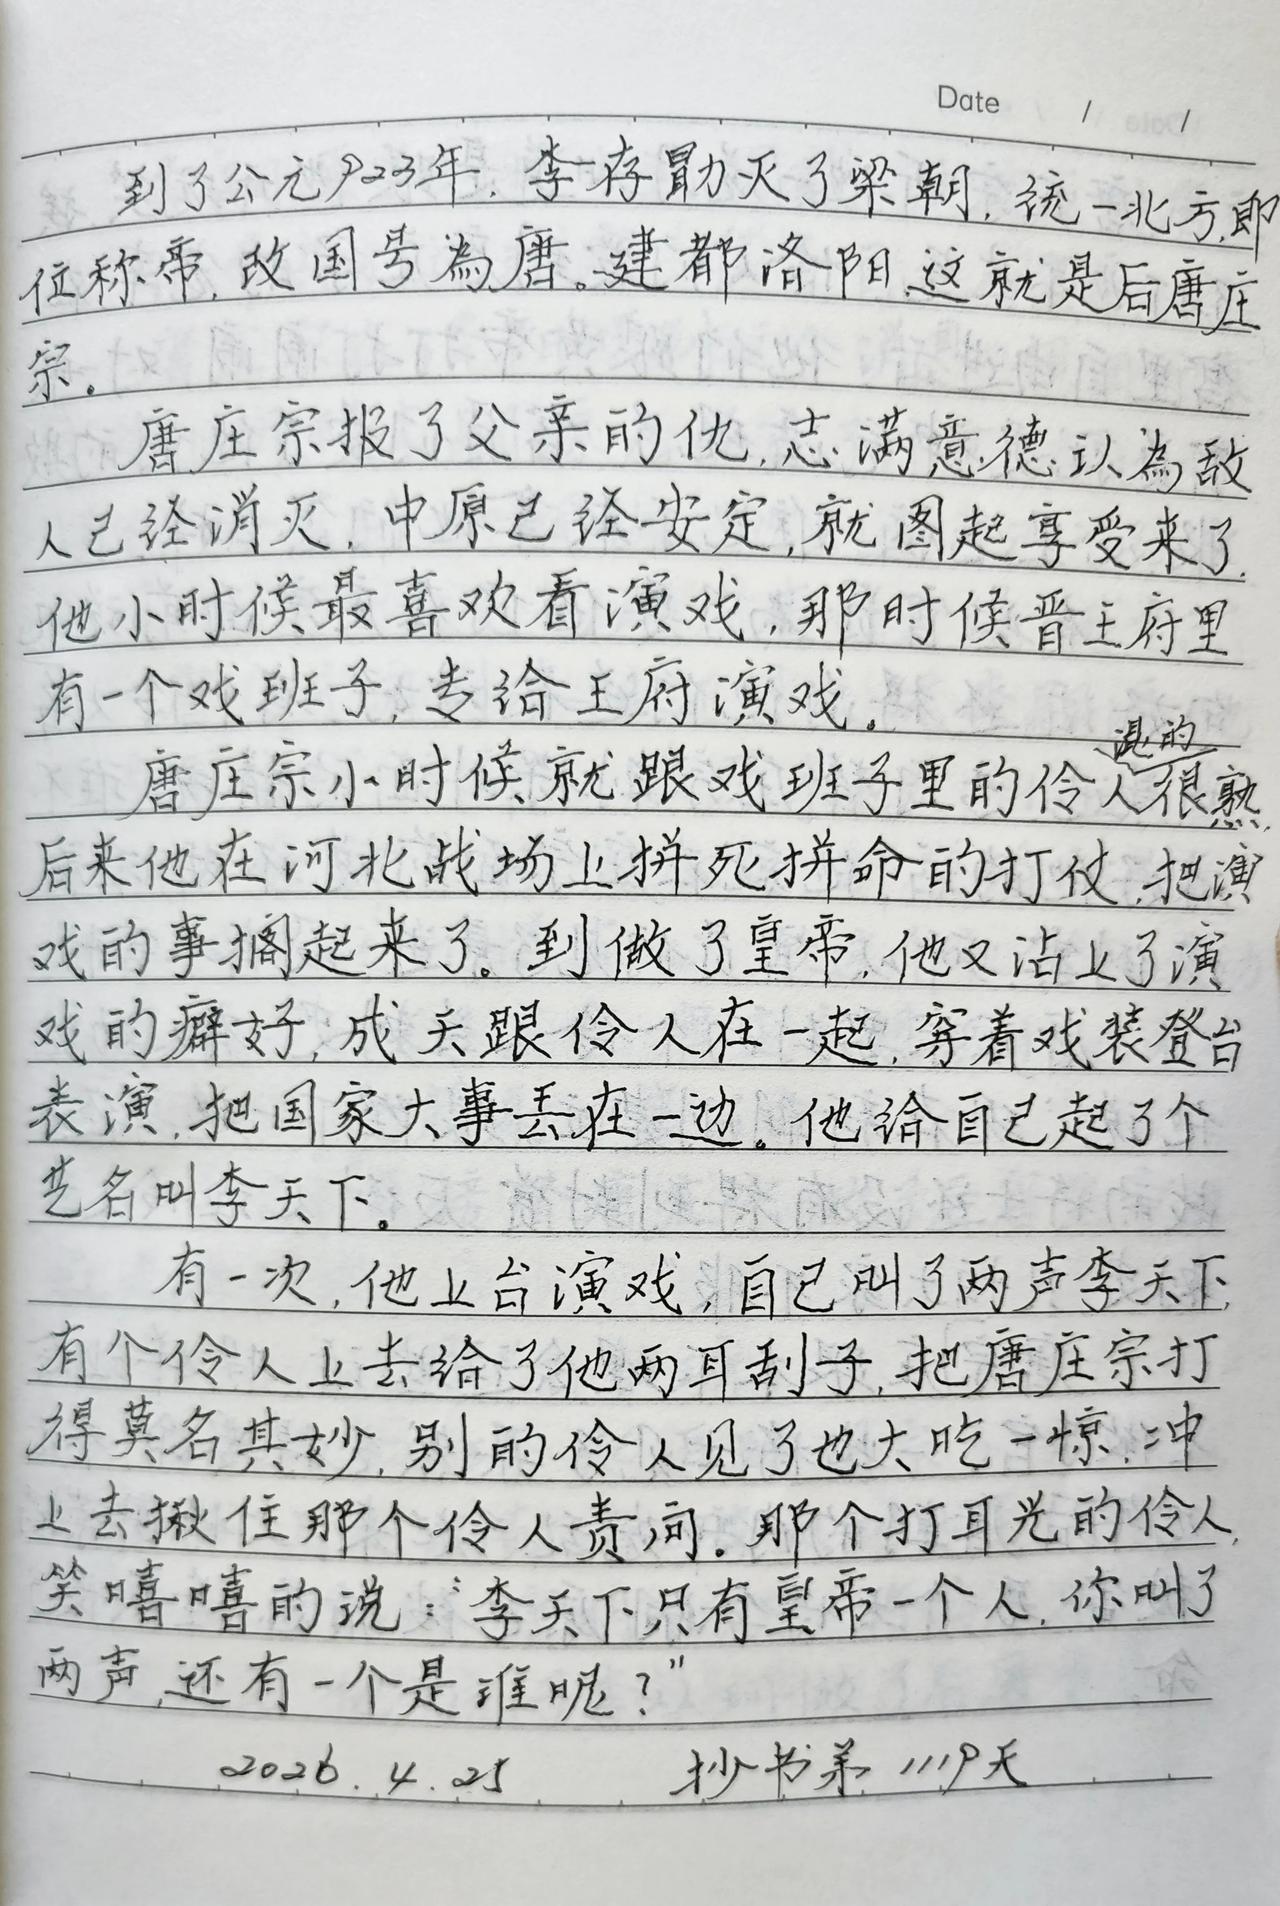 Date / /
到了公元923年，李存勖灭了梁朝，统一北方，即
位称帝，改国号為唐。建都洛阳，这就是后唐庄
宗。
唐庄宗报了父亲的仇，志满意德认為敌
人已经消灭，中原已经安定，就图起享受来了，
他小时候最喜欢看演戏，那时候晋王府里
有一个戏班子，专给王府演戏。
唐庄宗小时候就跟戏班子里的伶人混的很熟，
后来他在河北战场上拼死拼命的打仗，把演
戏的事搁起来了。到做了皇帝，他又沾上了演
戏的癖好，成天跟伶人在一起，穿着戏装登台
表演，把国家大事丢在一边。他给自己起了个
艺名叫李天下。
有一次，他上台演戏，自己叫了两声李天下，
有个伶人上去给了他两耳刮子，把唐庄宗打
得莫名其妙，别的伶人见了也大吃一惊，冲
上去揪住那个伶人责问。那个打耳光的伶人，
笑嘻嘻的说："李天下只有皇帝一个人，你叫了
两声，还有一个是谁呢？"
2026.4.25 抄书第1119天